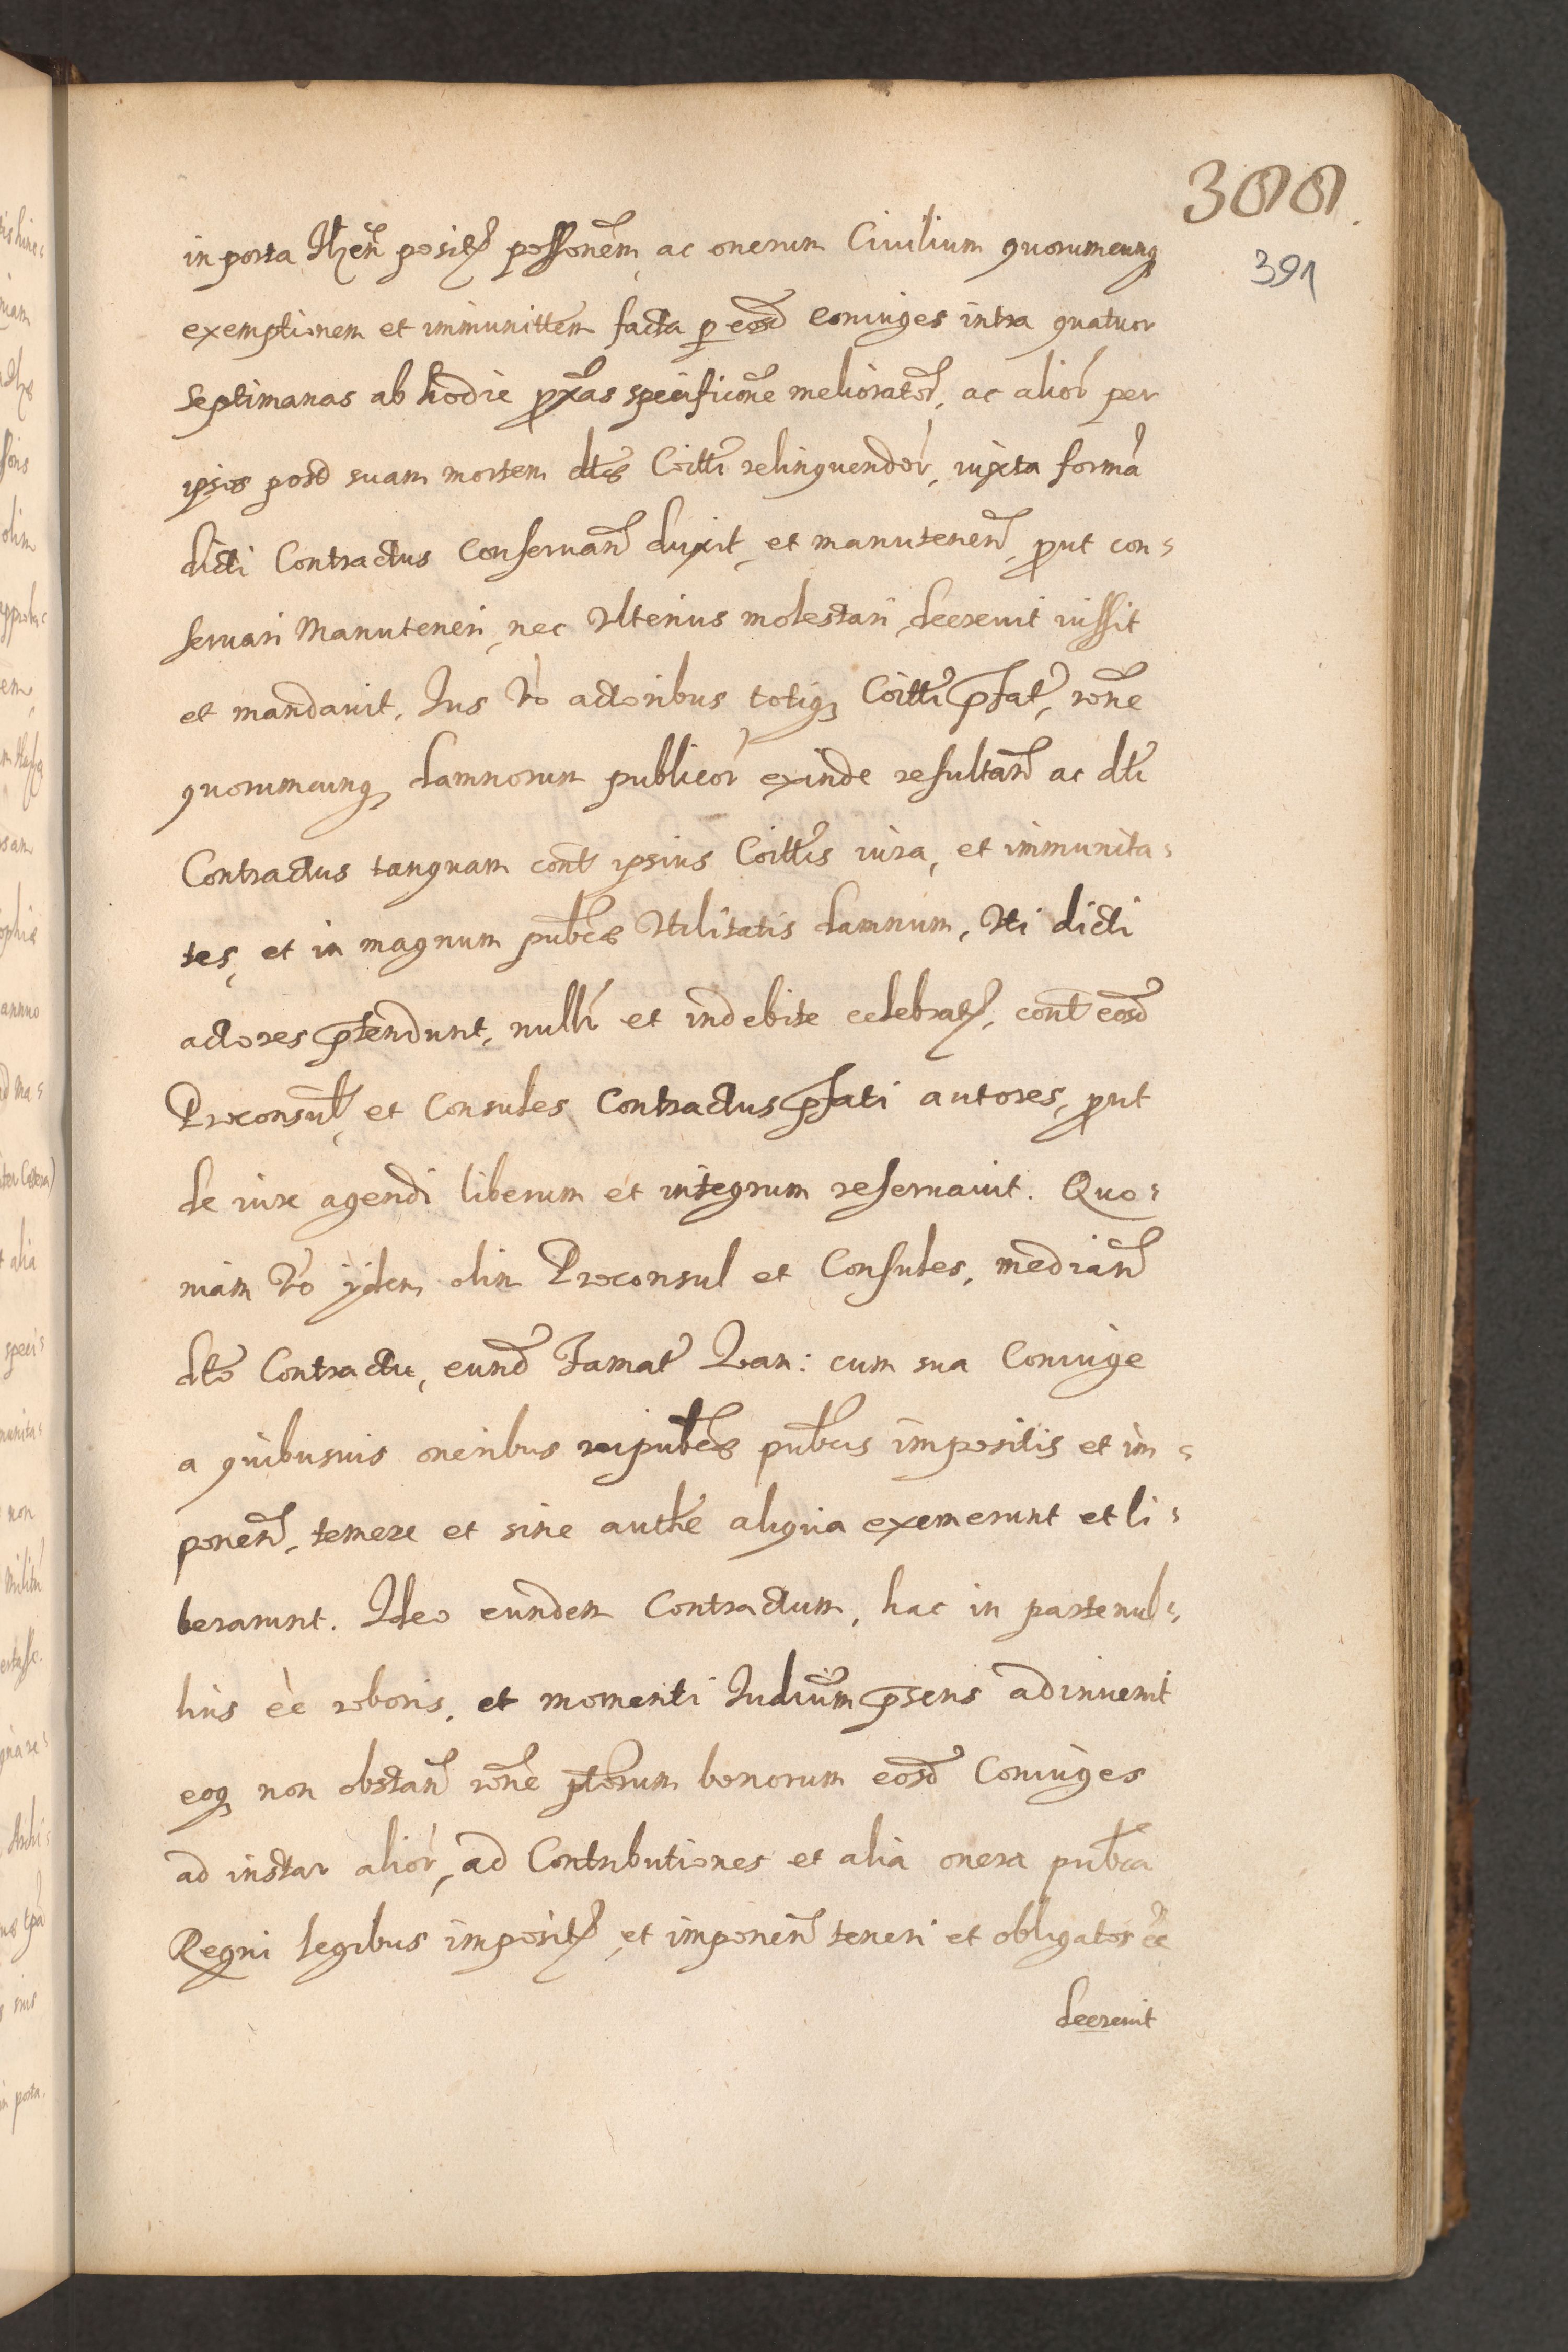 300.
391
in porta posit possonem, ac onerum Ciuilium quorumcunq
exemptionem et immunittem facta p eosd coniuges intra quatuor
septimanas ab hodie pxas specificone meliorator, ac alior per
ipsos post suam mortem dtae Coittti relinquendor, iuxta formã
dicti Contractus conseruan duxit, et manutenen, prut con=
seruari Manuteneri, nec Vlterius molestari decreuit iussit
et mandauit. Ius Vo actoribus totiq Coitti pfat, rone
quorumcunq damnorum publicor exinde resultan ac dti
Contractus tanquam cont ipsius Coittis iura, et immunita=
tes, et in magnum pubcae Vtilitatis damnum, Vti dicti
actores ptendunt, nullr et indebite celebrat, cont eosd
Proconsul, et Consules Contractus pfati autores, prut
de iure agendi liberum et integrum reseruauit. Quo=
niam Vo ijdem olim Proconsul et Consules, median
dto Contractu, eund Famat Zan: cum sua Coniuge
a quibusuis oneribus reipubcae pubcis impositis et im=
ponen, temere et sine authe aliqua exemerunt et li=
berarunt. Ideo eundem Contractum, hac in parte nul=
lius ee roboris, et momenti Iudium psens adinuenit
eoq non obstan rone ptorum bonorum eosd Coniuges
ad instar alior, ad Contributiones et alia onera pubca
Regni legibus imposit, et imponen teneri et obligatos ee
decreuit